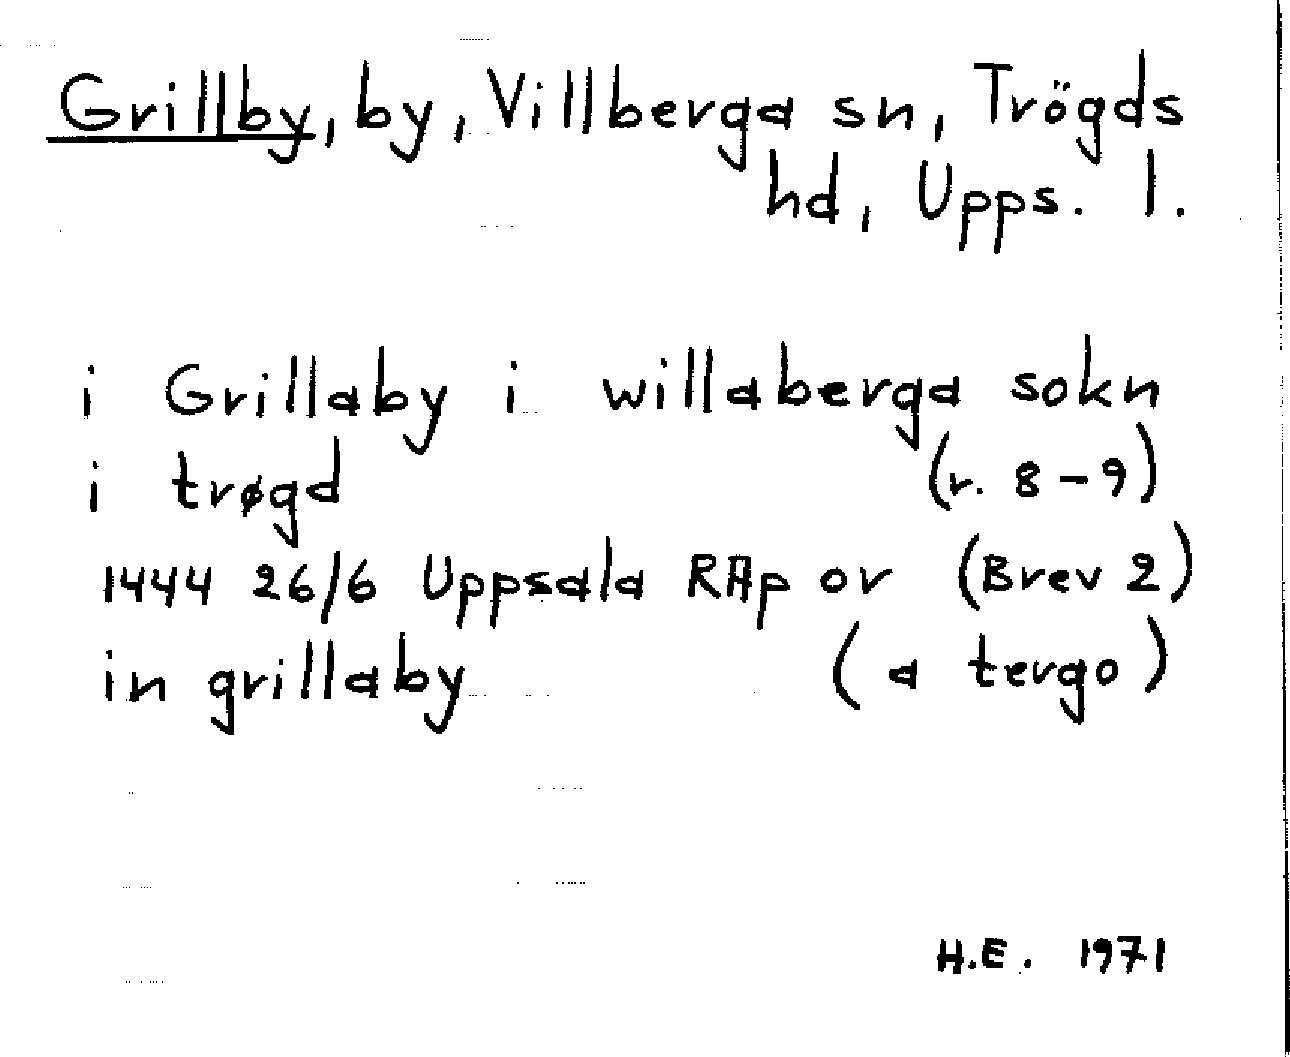 Grillby, by, Villberga sn, Trögds
hd, Upps. l.
i Grillaby i willaberga sokn
i trøgd (r. 8-9)
1444 26/6 Uppsala RAp or (Brev 2)
in grillaby (a tergo)
H.E. 1971